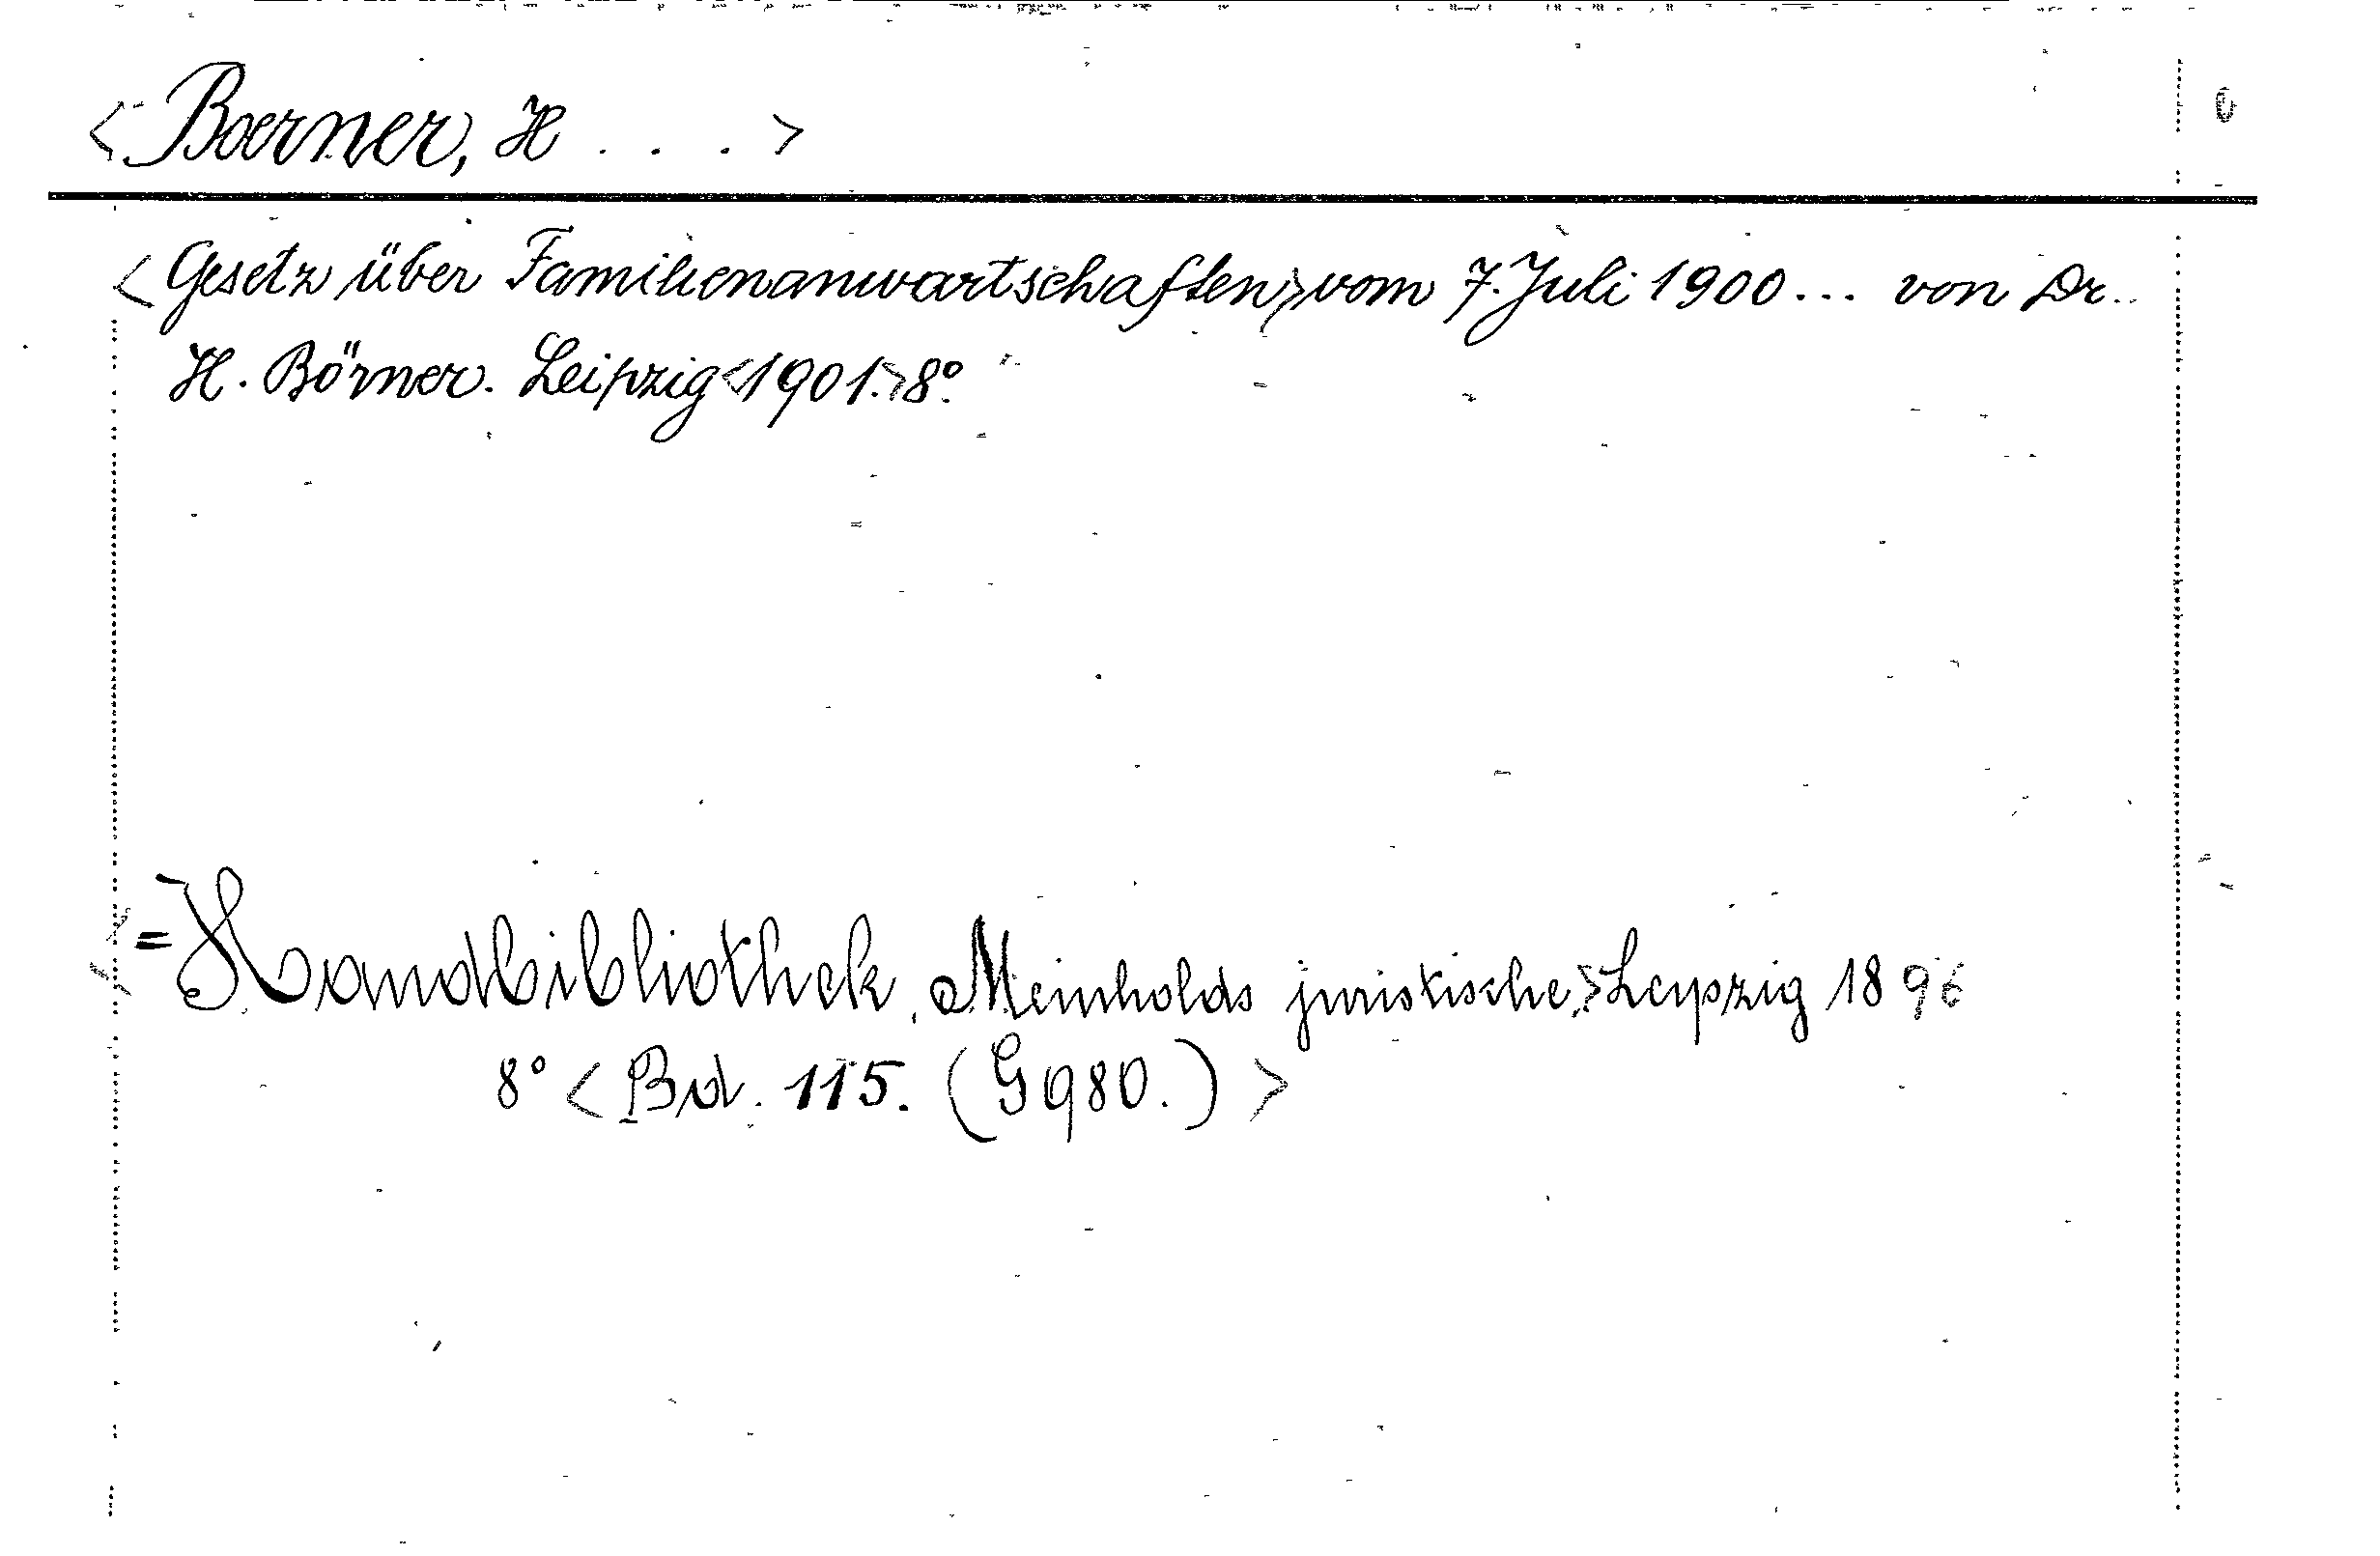 <Boerner, H . . . >
<Gesetz über Familienanwartschaften> vom 7. Juli 1900... von Dr..
H. Börner. Leipzig <1901.> 8°.
<= Handbibliothek, Meinholds juristische,> Leipzig 1896
8° < Bd. 115. (G 980.) >